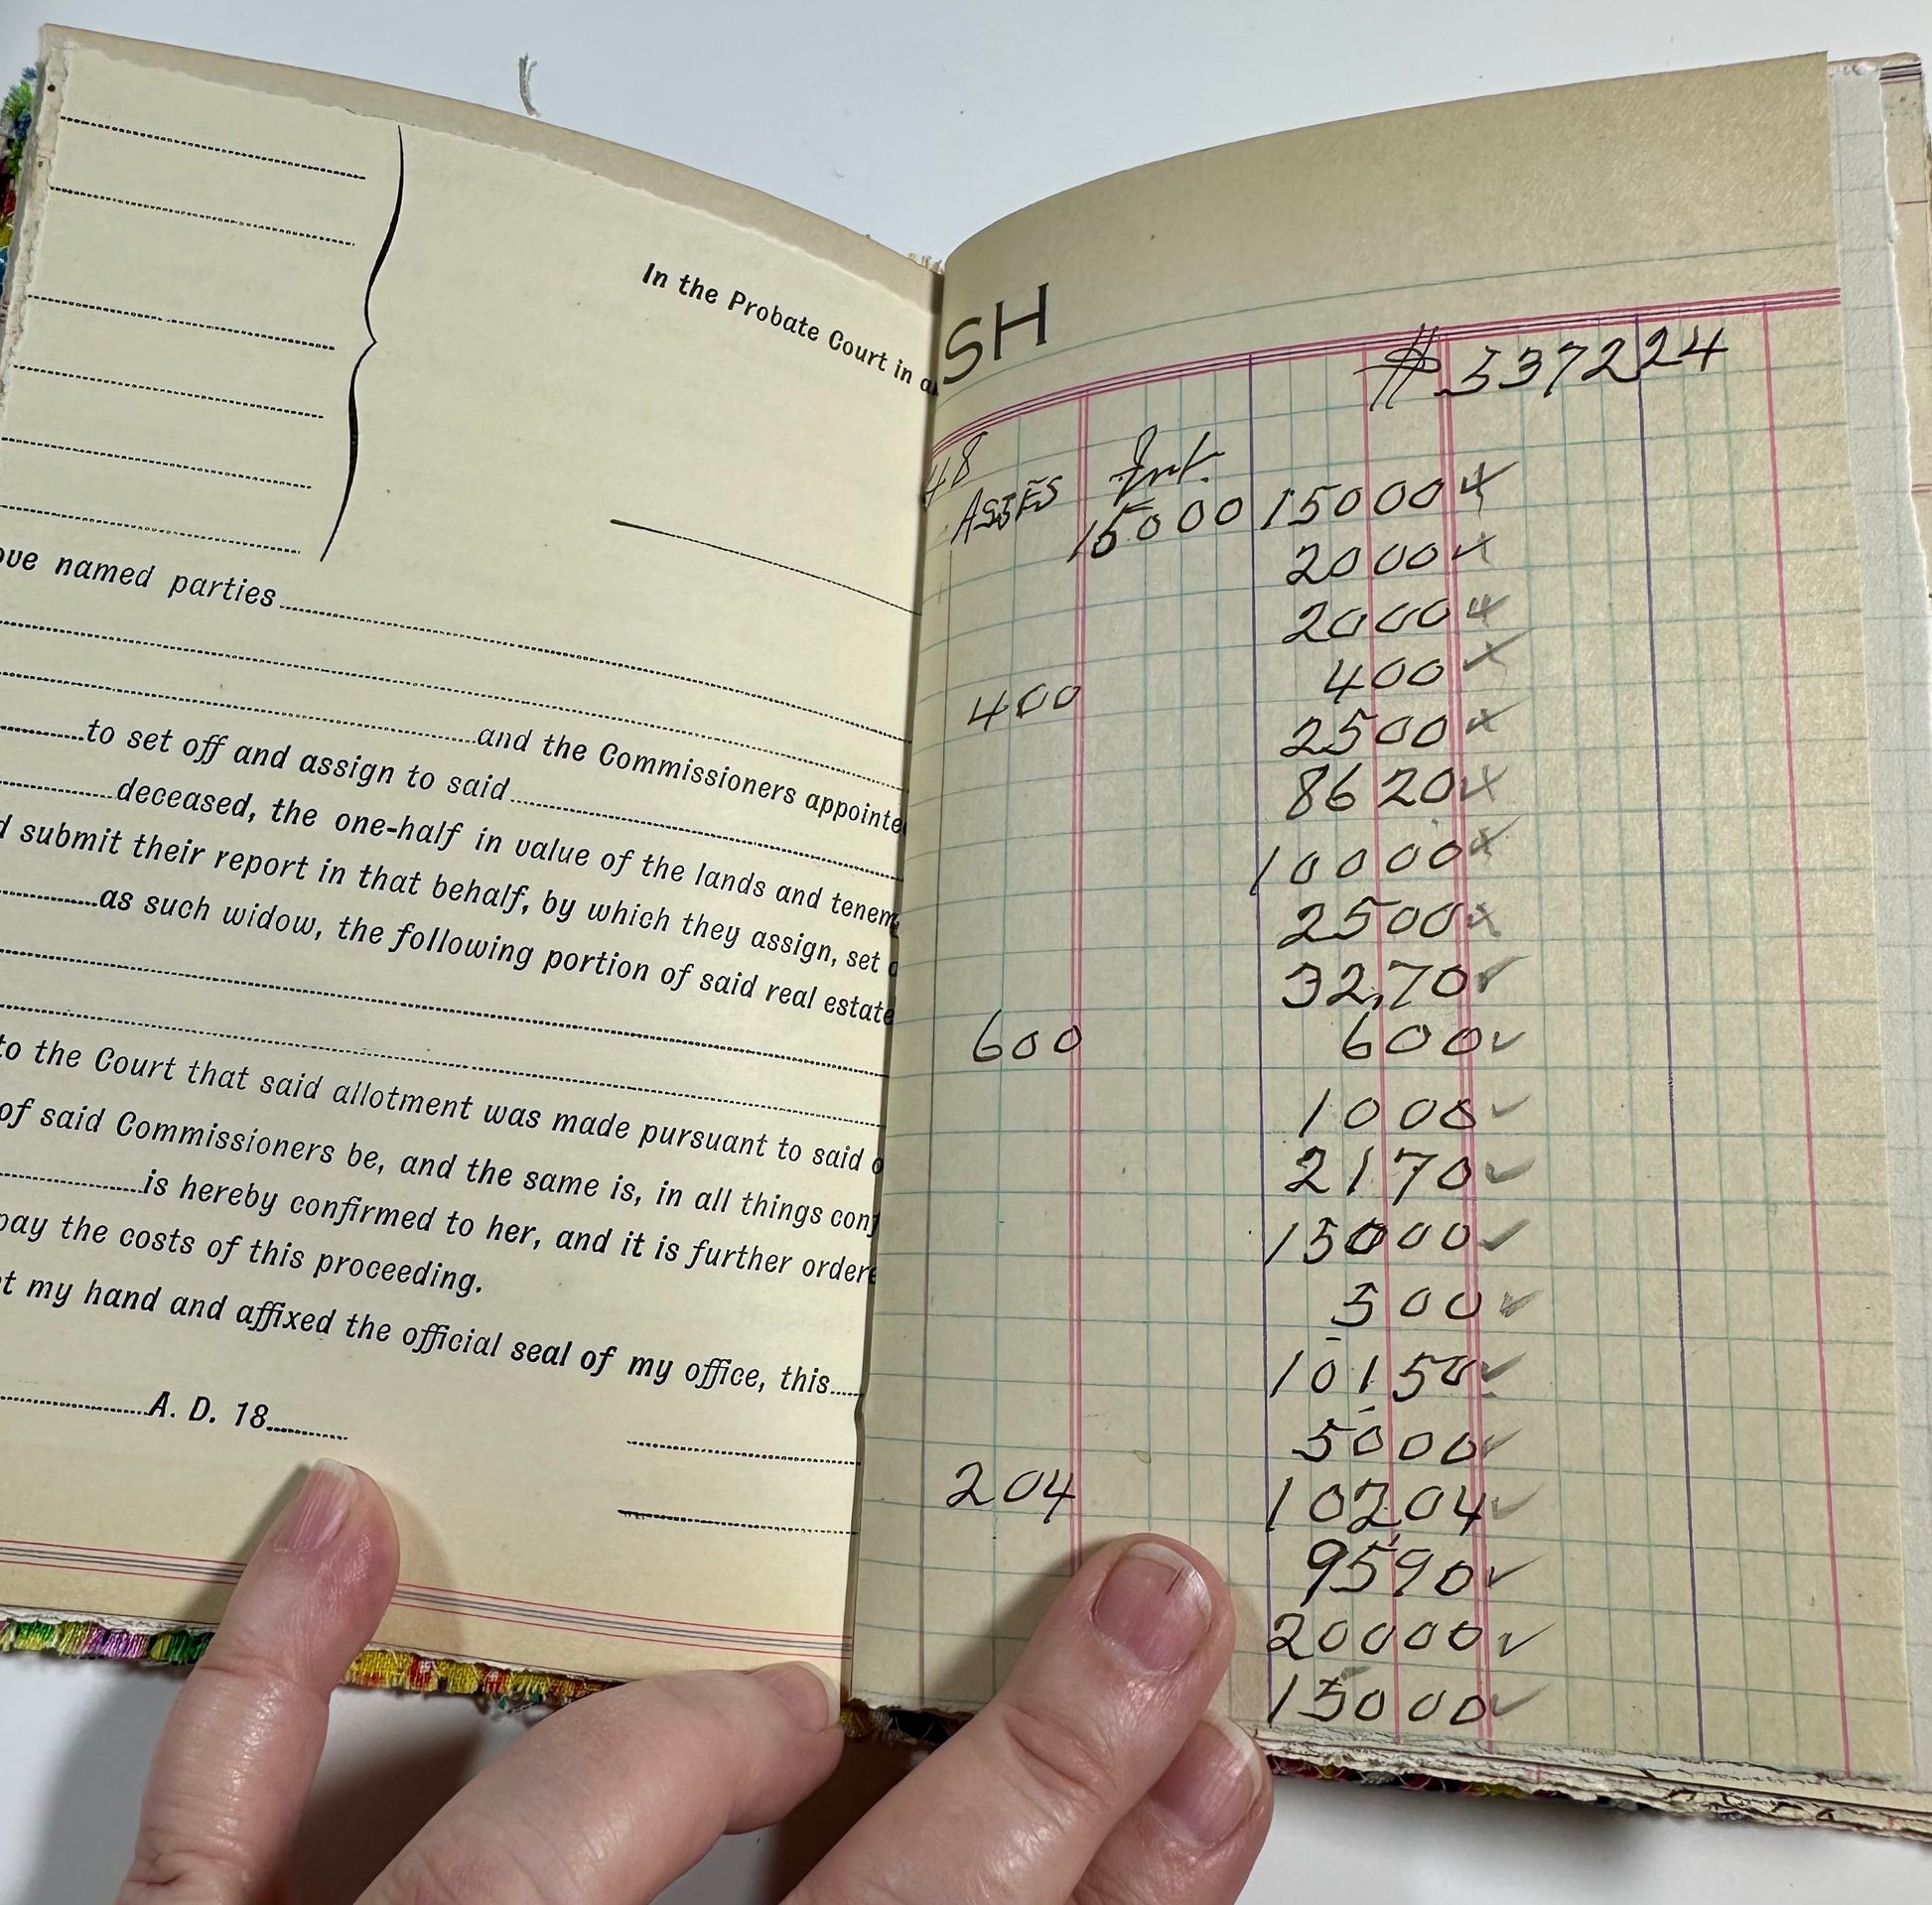 In the Probate Court in a
ove named parties
and the Commissioners appointe
to set off and assign to said
deceased, the one-half in value of the lands and tenem
d submit their report in that behalf, by which they assign, set o
as such widow, the following portion of said real estate
to the Court that said allotment was made pursuant to said o
of said Commissioners be, and the same is, in all things conf
is hereby confirmed to her, and it is further ordere
pay the costs of this proceeding.
et my hand and affixed the official seal of my office, this
A. D. 18
SH
$ 537224
48
Int.
15000 15000
2000
2000
400 400
2500
8620
10000
2500
32,70
600 600
1000
2170
15000
500
10150
5000
204 10204
9590
20000
15000